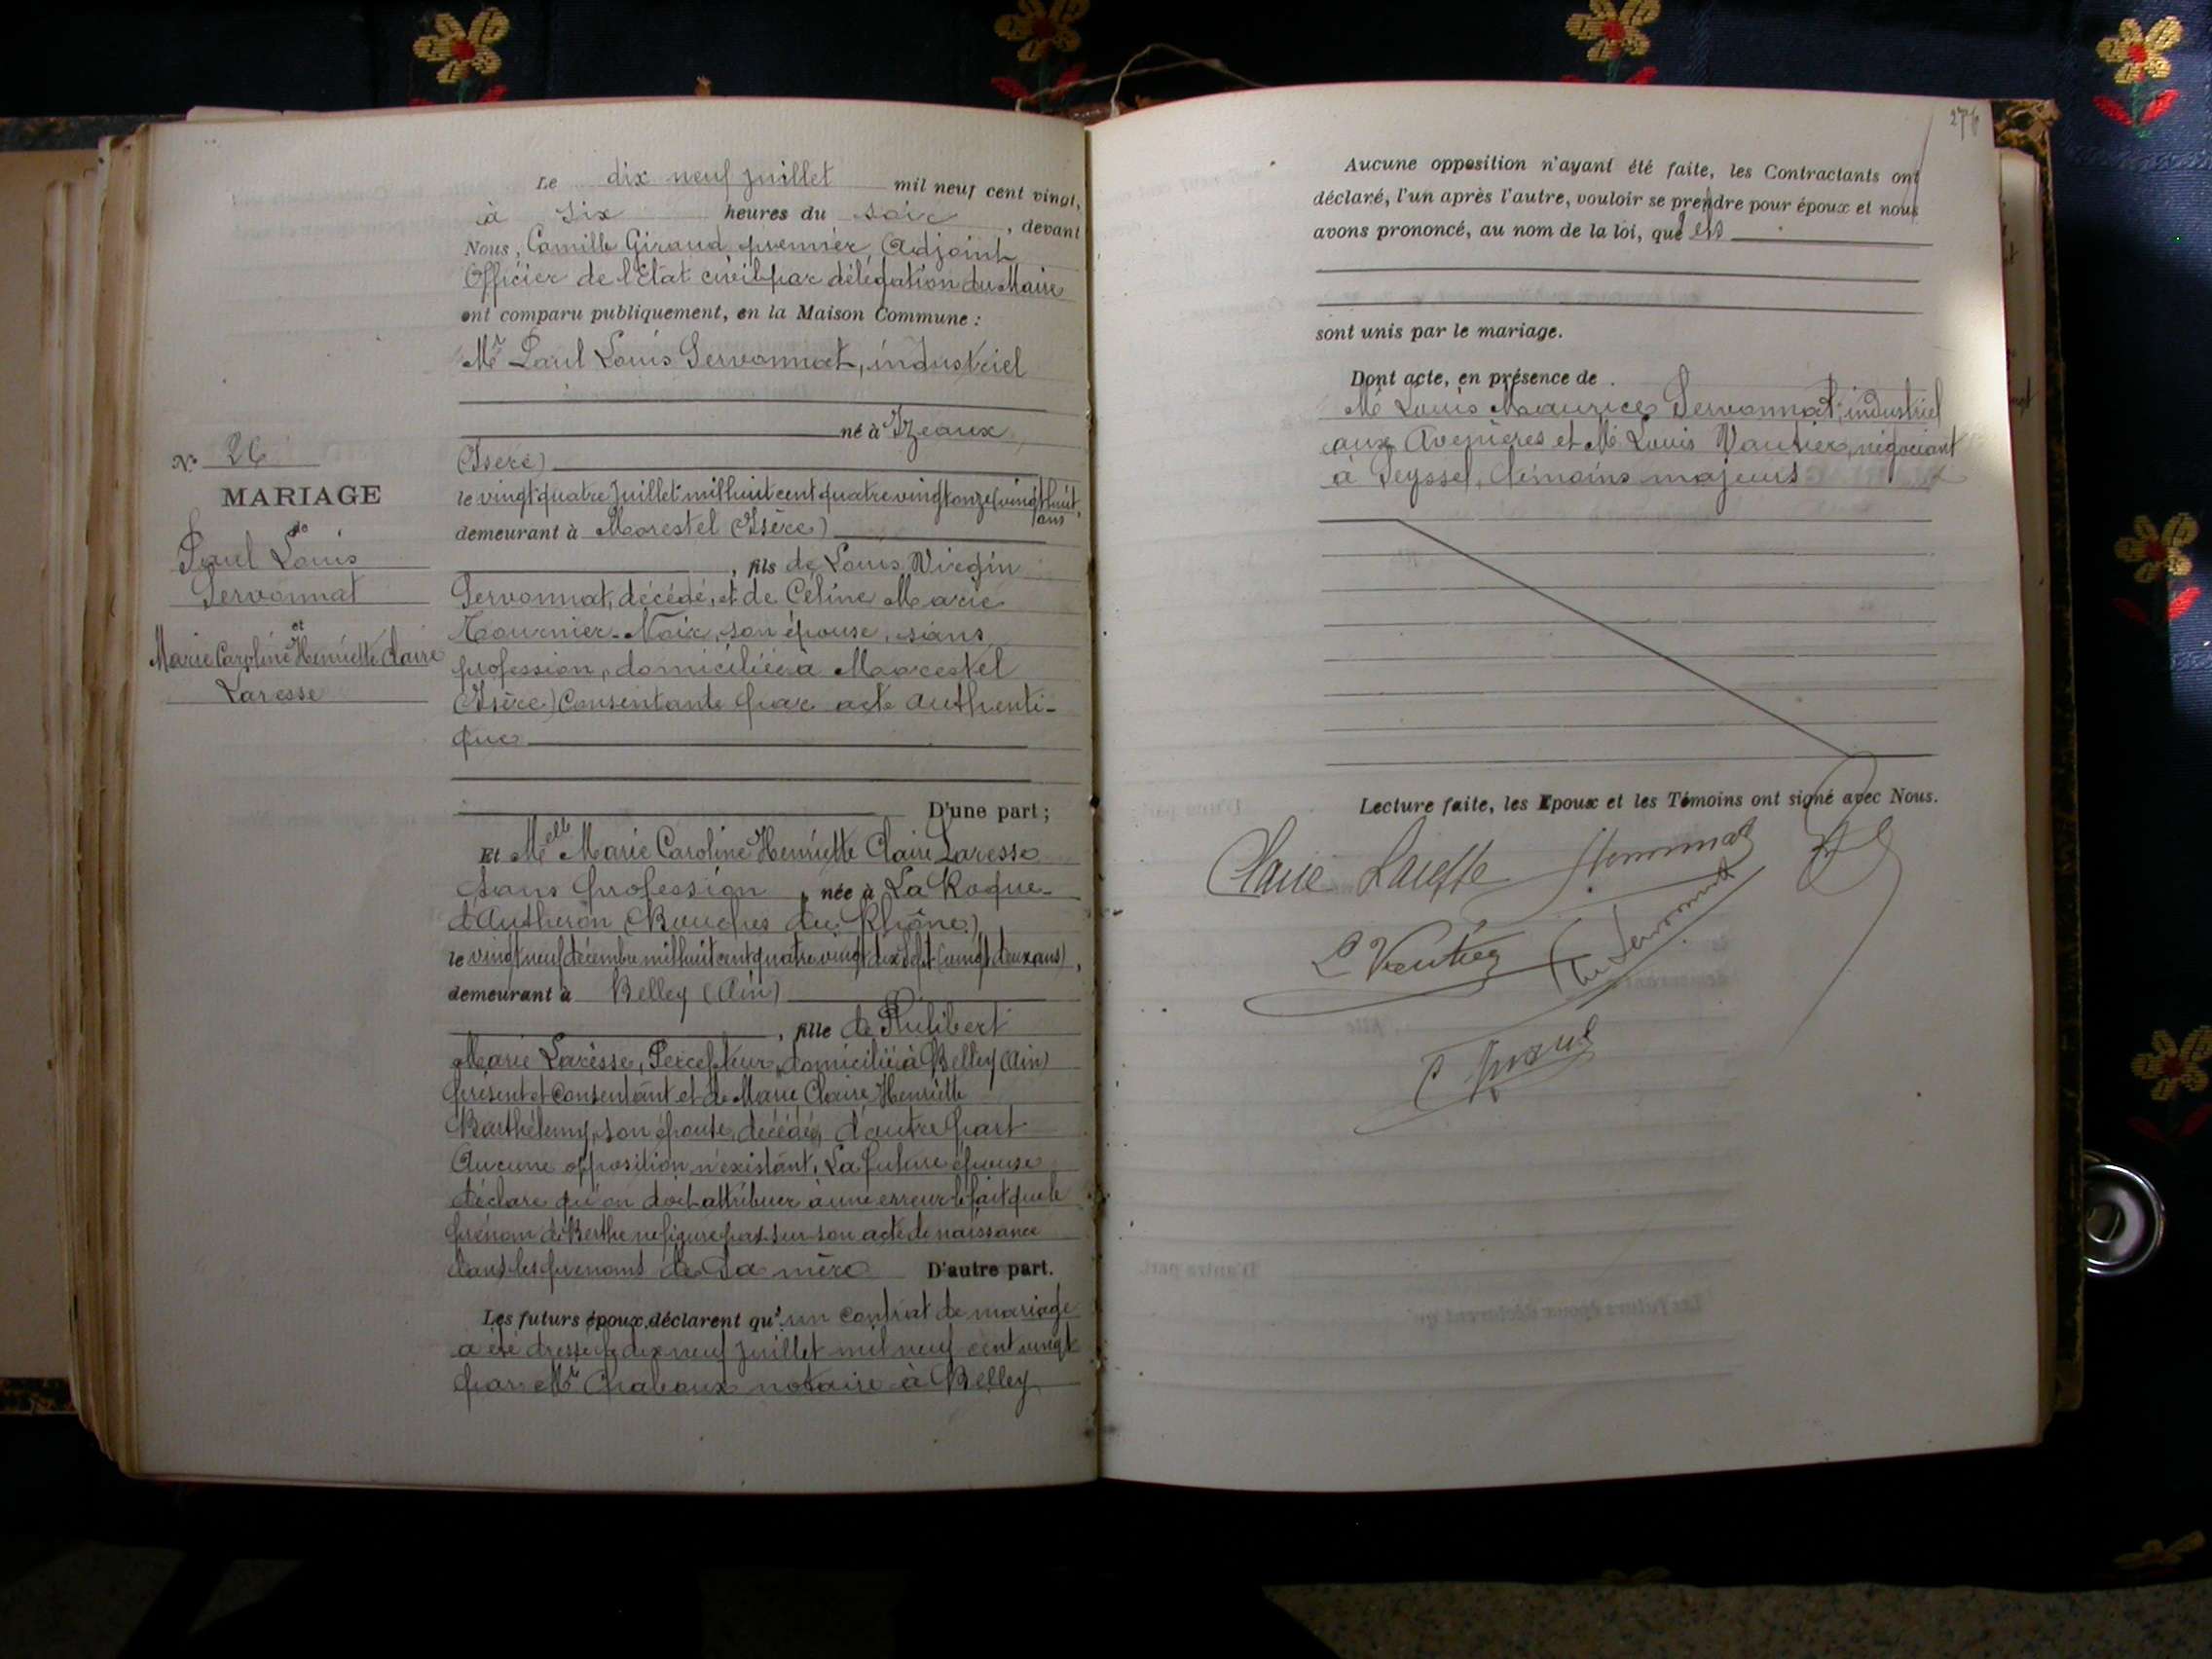 Le dix neuf juillet mil neuf cent vingt,
à six heures du soir, devant
Nous, Camille Giraud premier Adjoint
Officier de l'Etat civil par délégation du Maire
ont comparu publiquement, en la Maison Commune :
Mr Paul Louis Servonnat, industriel
né à Izeaux
(Isère)
le vingt quatre Juillet mil huit cent quatre vingt onze (vingt huit ans
demeurant à Morestel (Isère)
, fils de Louis Virgin
Servonnat, décédé, et de Céline Marie
Tournier-Noir, son épouse, sans
profession, domiciliée à Morestel
(Isère) Consentante par acte authenti-
que
D'une part ;
Et Melle Marie Caroline Henriette Claire Laresse
sans profession, née à La Roque-
d'Antheron (Bouches du Rhône)
le vingt neuf décembre mil huit cent quatre vingt dix sept (vingt deux ans),
demeurant à Belley (Ain)
, fille de Philibert
Marie Laresse, Percepteur, domicilié à Belley (Ain)
présent et consentant et de Marie Claire Henriette
Barthélemy, son épouse, décédée, d'autre part
Aucune opposition n'existant, La future épouse
déclare qu'on doit attribuer à une erreur le fait que le
prénom de Berthe ne figure pas sur son acte de naissance
dans les prénoms de sa mère D'autre part.
Les futurs époux déclarent qu'un contrat de mariage
a été dressé le dix neuf juillet mil neuf cent vingt
par Me notaire à Belley
No 26
MARIAGE
de
Paul Louis
Servonnat
et
Marie Caroline Henriette Claire
Laresse
276
Aucune opposition n'ayant été faite, les Contractants ont
déclaré, l'un après l'autre, vouloir se prendre pour époux et nous
avons prononcé, au nom de la loi, que
sont unis par le mariage.
Dont acte, en présence de
Mr Louis Maurice Servonnat, industriel
aux Avenières et Mr Louis Vautier, négociant
à Seyssel, témoins majeurs
Lecture faite, les Epoux et les Témoins ont signé avec Nous.
Claire Laresse Servonnat
L Vautier Servonnat
C Giraud